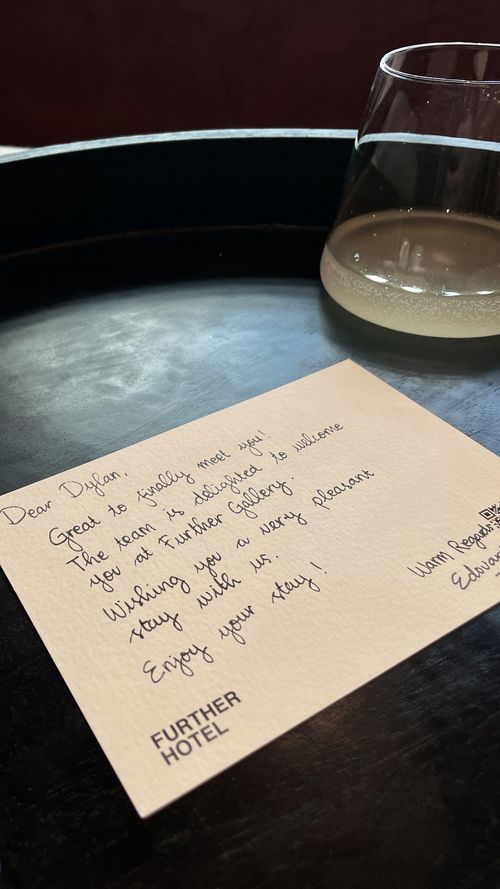 Dear Dylan,
Great to finally meet you!
The team is delighted to welcome
you at Further Gallery.
Wishing you a very pleasant
stay with us.
Enjoy your stay!
Warm Regards
FURTHER
HOTEL